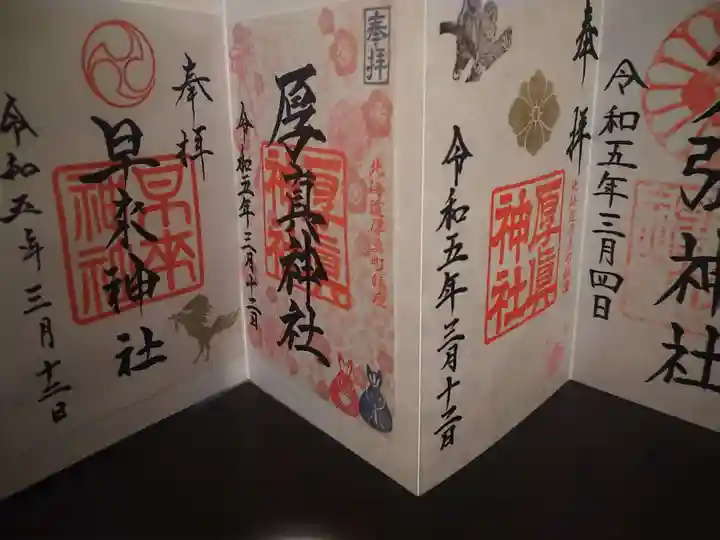 神社
令和五年三月四日
奉拝
厚眞
神社
令和五年三月十二日
奉拝
北海道厚真町鎮座
厚真神社
厚眞
神社
令和五年三月十二日
奉拝
早来神社
早来
神社
令和五年三月十二日